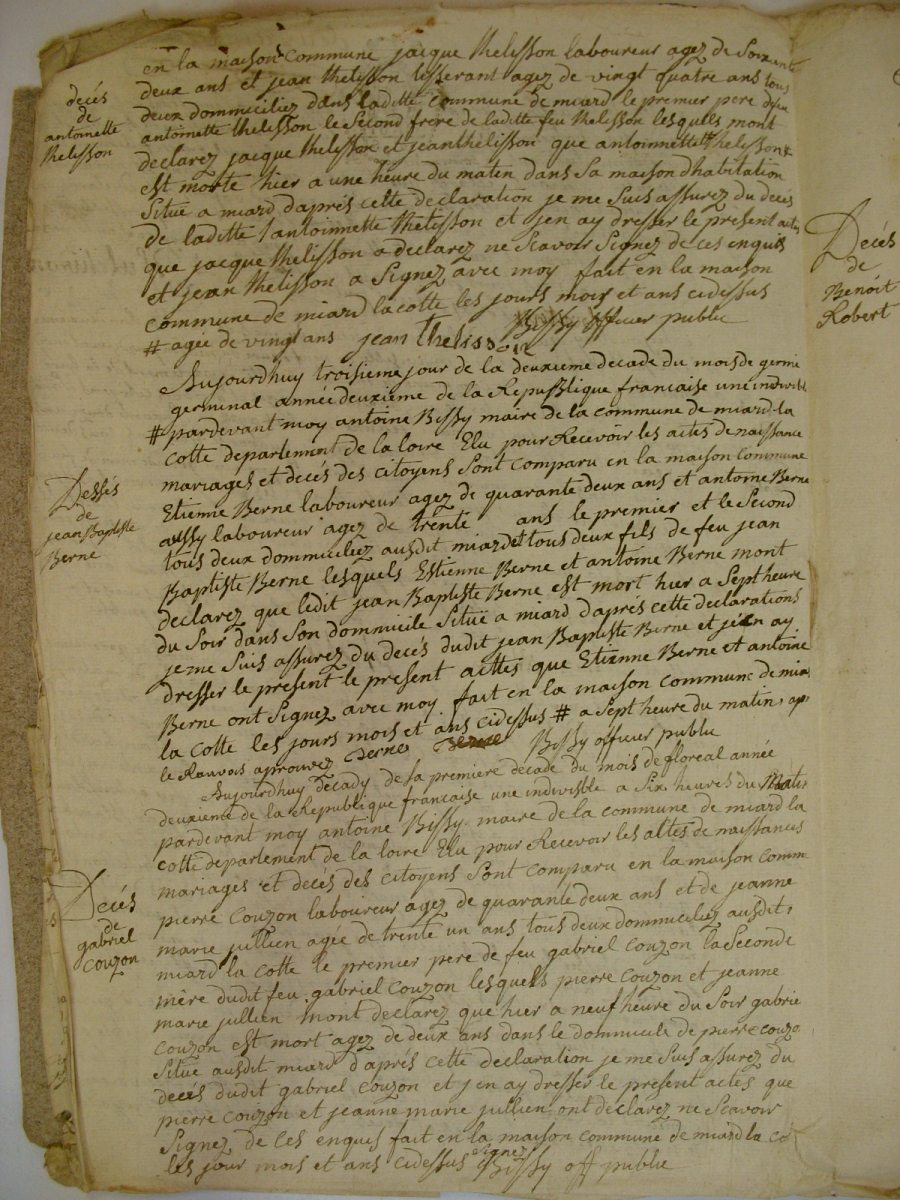 en la maison commune jacque thelisson laboureur agez de Soixante
deux ans et jean thelisson tisserant agez de vingt quatre ans tous
deux dommiciliez dans laditte commune de miard le premier pere dite
antoinette thelisson le Second frere de laditte feu thelisson lesquels mont
declarez jacque thelisson et jean thelisson que antoinnette thelisson #
est morte hier a une heure du matin dans sa maison dhabitation
Situé a miard daprés cette declaration je me suis assurez du decés
de laditte antoinnette thelisson et jen ay dresser le present actes
que jacque thelisson a declarez ne Scavoir Signez de ces enquis
et jean thelisson a Signez avec moy fait en la maison
commune de miard la cotte les jours mois et ans cidessus
# agée de vingt ans jean thelisson Bissy officier public
decés
de
antoinette
thelisson
Aujourdhuy troisieme jour de la deuxieme decade du mois de germi
germinal année deuxieme de la Republique francaise une indivisible
# pardevant moy antoine Bissy maire de la commune de miard la
cotte departement de la loire Elu pour Recevoir les actes de naissance
mariages et decés des citoyens Sont comparu en la maison commune
Etienne Berne laboureur agez de quarante deux ans et antoine Berne
aussy laboureur agez de trente ans le premier et le Second
tous deux dommiciliez ausdit miard et tous deux fils de feu jean
Baptiste Berne lesquels Estienne Berne et antoine Berne mont
declarez que ledit jean Baptiste Berne est mort hier a Sept heure
du Soir dans Son dommicile Situé a miard daprés cette declarations
je me Suis assurez du decés dudit jean Baptiste Berne et jen ay
dresser le present le present acttes que Etienne Berne et antoine
Berne ont Signez avec moy fait en la maison commune de miar
la cotte les jours mois et ans cidessus # a Sept heure du matin ap
le Ranvois aprouvez Berne Berne Bissy officier public
Dessés
de
jean Baptiste
Berne
Aujourdhuy Decady de la premiere decade du mois de floreal année
deuxieme de la Republique francaise une indivisible a Six heures du Matin
pardevant moy antoine Bissy maire de la commune de miard la
cotte departement de la loire Elu pour Recevoir les actes de naissances
mariages et decés des citoyens Sont comparu en la maison comm
pierre couzon laboureur agez de quarante deux ans et de jeanne
marie jullien agée de trente un ans tous deux dommiciliez ausdit
miard la cotte le premier pere de feu gabriel couzon la Seconde
mère dudit feu gabriel couzon lesquels pierre couzon et jeanne
marie jullien mont declarez que hier a neuf heure du Soir gabrie
couzon est mort agez de deux ans dans le dommicile de pierre couzo
Situé ausdit miard daprés cette declaration je me Suis assurez du
decés dudit gabriel couzon et jen ay dresser le present actes que
pierre couzon et jeanne marie jullien ont declarez ne Scavoir
Signez de ces enquis fait en la maison commune de miard la co
les jour mois et ans cidessus Signez Bissy off public
Decés
de
gabriel
couzon
Decés
de
Benoit
Robert